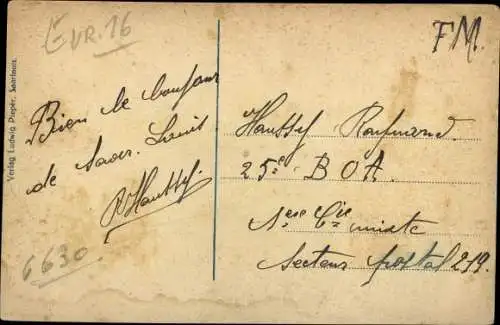 EVR. 16
F.M.
Verlag Ludwig Pieper, Saarlouis.
Bien le bonjour
de Saar. Louis.
R Haussy.
6630
Haussy Raymond.
25e B O A.
Cie mixte
Secteur postal 219.